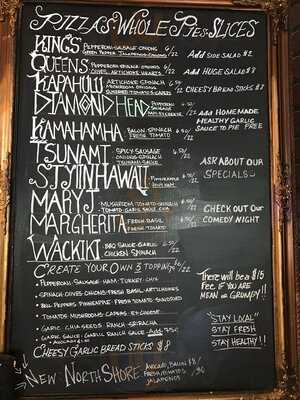 PIZZAS·WHOLE PIES·SLICES
KING'S PEPPERONI-SAUSAGE ONIONS 6/22
GREEN PEPPER JALAPENOS ONIONS
Add SIDE SALAD $2
QUEENS PEPPERONI-SPINACH ONIONS 6/22
OLIVES, ARTICHOKE HEARTS
Add HUGE SALAD $8
KAPAHULU ARTICHOKE SPINACH 6.50/22
MUSHROOM ONIONS
SUNDRIED TOMATOES
CHEESY BREAD STICKS $8
DIAMOND HEAD PEPPERONI
SAUSAGE
Add HOMEMADE
HEALTHY GARLIC
SAUCE TO PIE FREE
KAMAHAMHA BACON, SPINACH 6.50/22
FRESH TOMATO
TSUNAMI SPICY SAUSAGE
ONIONS SPINACH
TSUNAMI SAUCE
ASK ABOUT OUR
SPECIALS
STMINHAWAII PINEAPPLE
HAM
MARY J MUSHROOM-TOMATO-SPINACH 6.50/22
TOMATO GARLIC SAUCE
CHECK OUT OUR
COMEDY NIGHT
MARGHERITA FRESH BASIL 6/22
FRESH TOMATO
WACKIKI BBQ SAUCE-GARLIC 6.50/22
CHICKEN SPINACH
CREATE YOUR OWN 3 TOPPING
• PEPPERONI-SAUSAGE-HAM-TURKEY-CHIX
• SPINACH-OLIVES-ONIONS-FRESH BASIL-ARTICHOKES
• BELL PEPPERS, PINEAPPLE-FRESH TOMATO-SUNDRIED
TOMATOES MUSHROOMS CAPERS
• GARLIC-CHIA SEEDS-RANCH-SRIRACHA
GARLIC SAUCE-GARLIC RANCH SAUCE
There will be a $15
FEE IF YOU ARE
MEAN or GRUMPY!!!
"STAY LOCAL"
STAY FRESH
STAY HEALTHY!!
CHEESY GARLIC BREAD STICKS $8
NEW NORTH SHORE AVOCADO, BACON
FRESH TOMATO
JALAPENOS